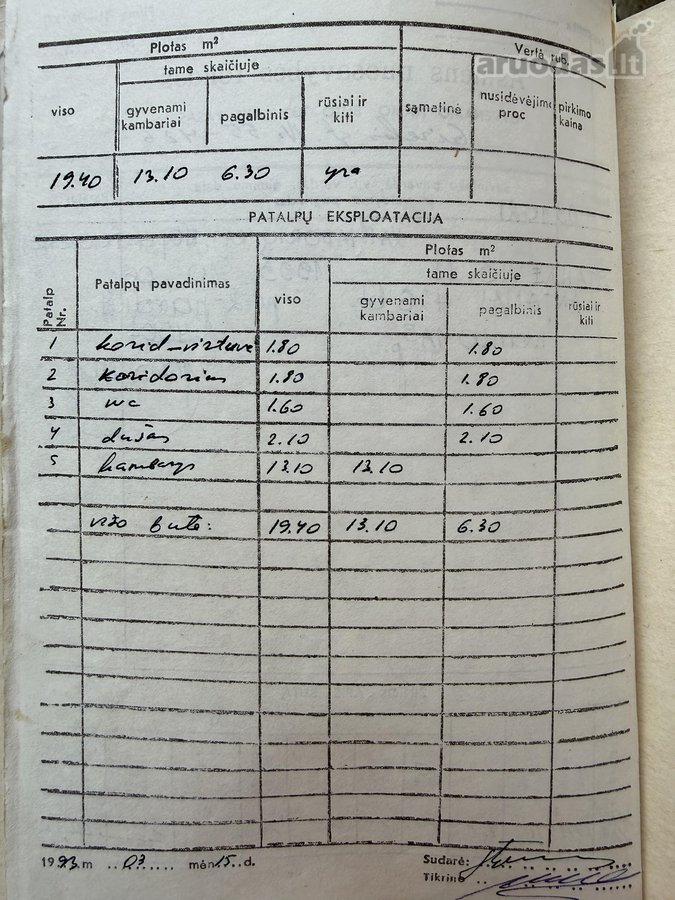 Plotas m²
Vertė rub.
aruodas.lt
viso
tame skaičiuje
gyvenami kambariai
pagalbinis
rūsiai ir kiti
sąmatinė
nusidėvėjimo proc
pirkimo kaina
19.40 13.10 6.30 yra
PATALPŲ EKSPLOATACIJA
Patalp Nr.
Patalpų pavadinimas
Plotas m²
viso
tame skaičiuje
gyvenami kambariai
pagalbinis
rūsiai ir kiti
1 korid-virtuvė 1.80 1.80
2 koridorius 1.80 1.80
3 wc 1.60 1.60
4 dušas 2.10 2.10
5 kambarys 13.10 13.10
viso bute: 19.40 13.10 6.30
1993 m .. 03 ...... mėn 15 .. d.
Sudarė:
Tikrino